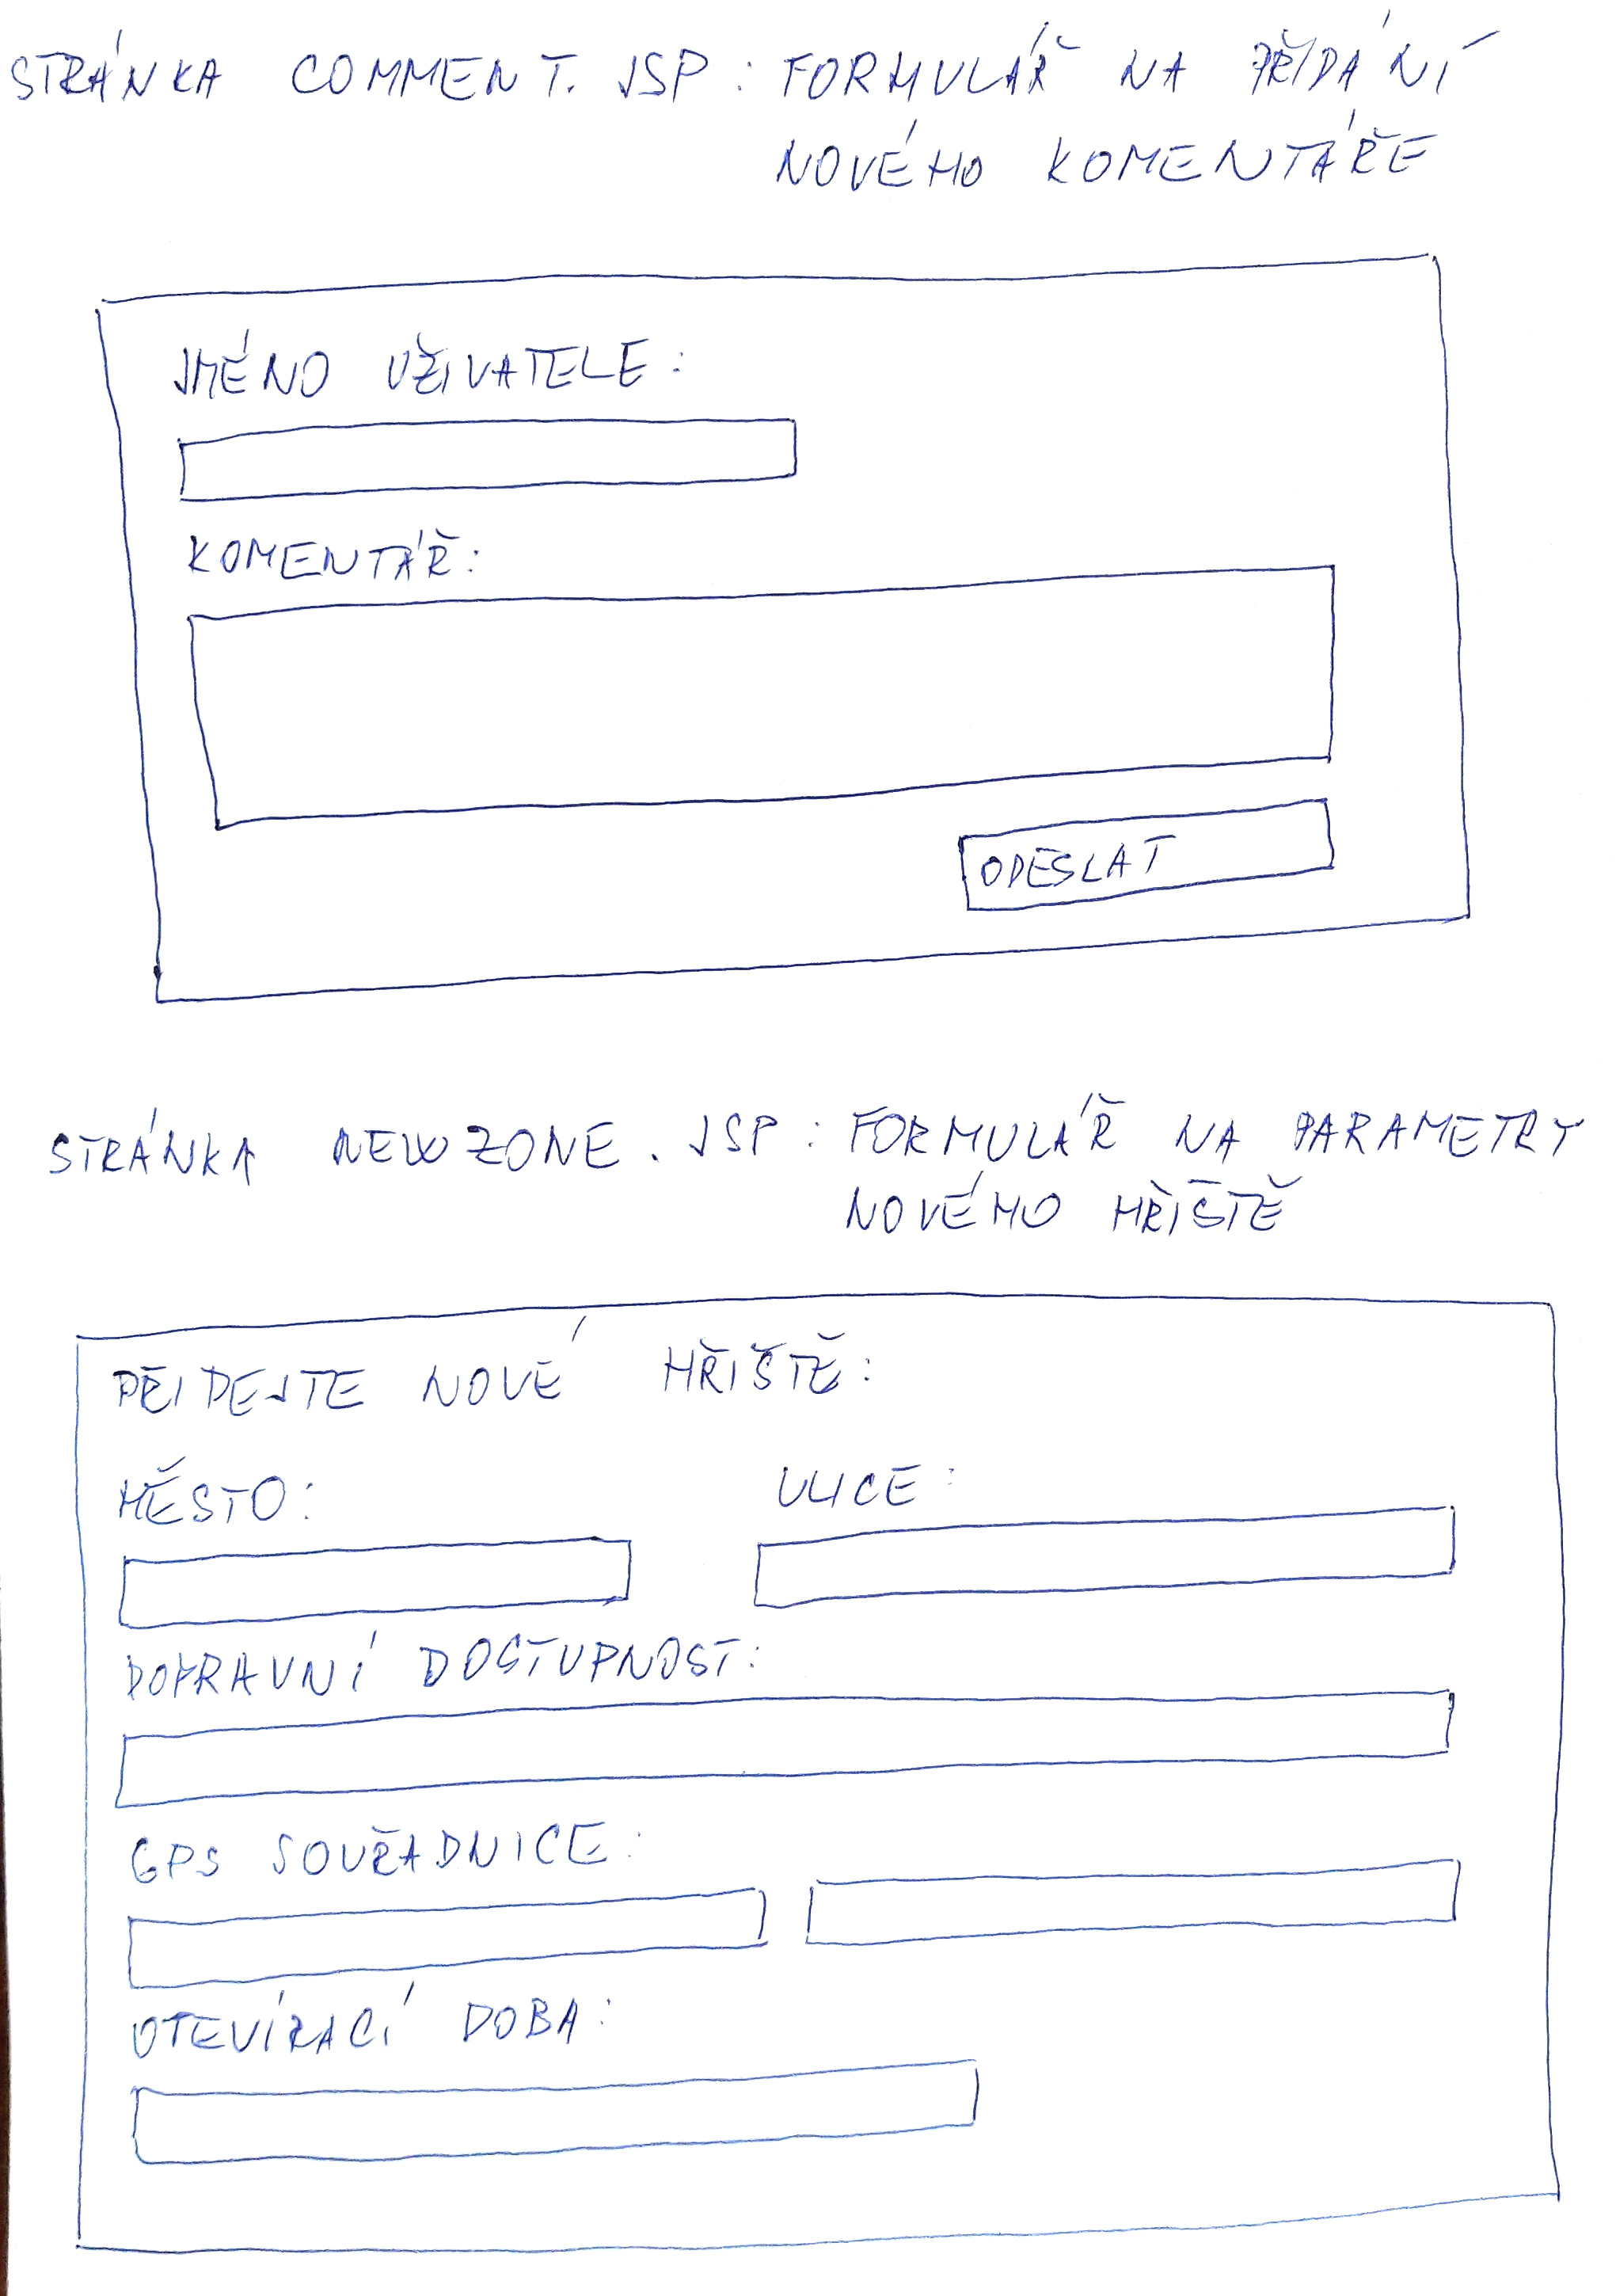 STRÁNKA COMMENT.JSP: FORMULÁŘ NA PŘIDÁNÍ
NOVÉHO KOMENTÁŘE
JMÉNO UŽIVATELE:
KOMENTÁŘ:
ODESLAT
STRÁNKA NEWZONE.JSP: FORMULÁŘ NA PARAMETRY
NOVÉHO HŘIŠTĚ
PŘIDEJTE NOVÉ HŘIŠTĚ:
MĚSTO: ULICE:
DOPRAVNÍ DOSTUPNOST:
GPS SOUŘADNICE:
OTEVÍRACÍ DOBA: